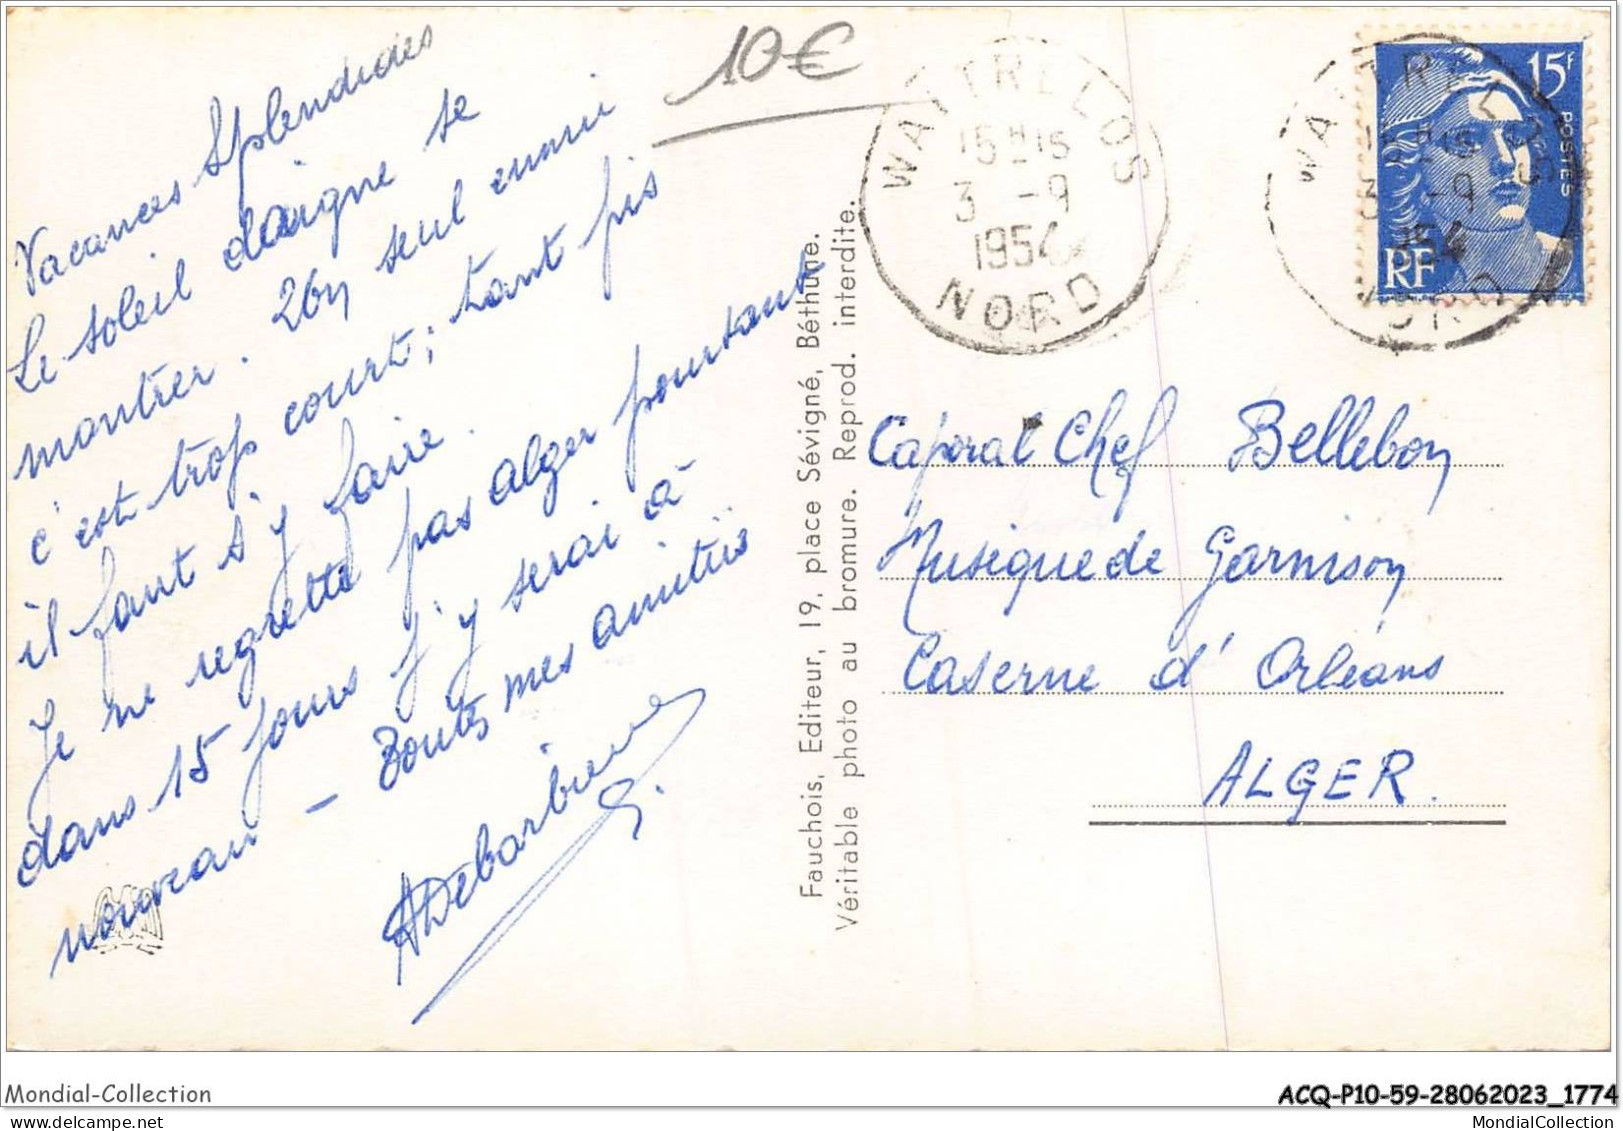 Vacances Splendides
Le soleil daigne se
montrer. Un seul ennui
c'est trop court; tant pis
il faut s'y faire.
Je ne regrette pas alger pourtant
dans 15 jours j'y serai à
nouveau - Toutes mes amitiés
ADebarbieux
10€
WATTRELOS
15H15
3 -9
1954
NORD
WATTRELOS
15H15
3 -9
1954
NORD
15F
POSTES
RF
Fauchois, Editeur, 19, place Sévigné, Béthune.
Véritable photo au bromure. Reprod. interdite.
Caporal Chef Bellebon
Musique de Garnison
Caserne d'Orléans
ALGER.
Mondial-Collection
ACQ-P10-59-28062023_1774
https://www.delcampe.net/fr/collections/store/mondial-collection
MondialCollection